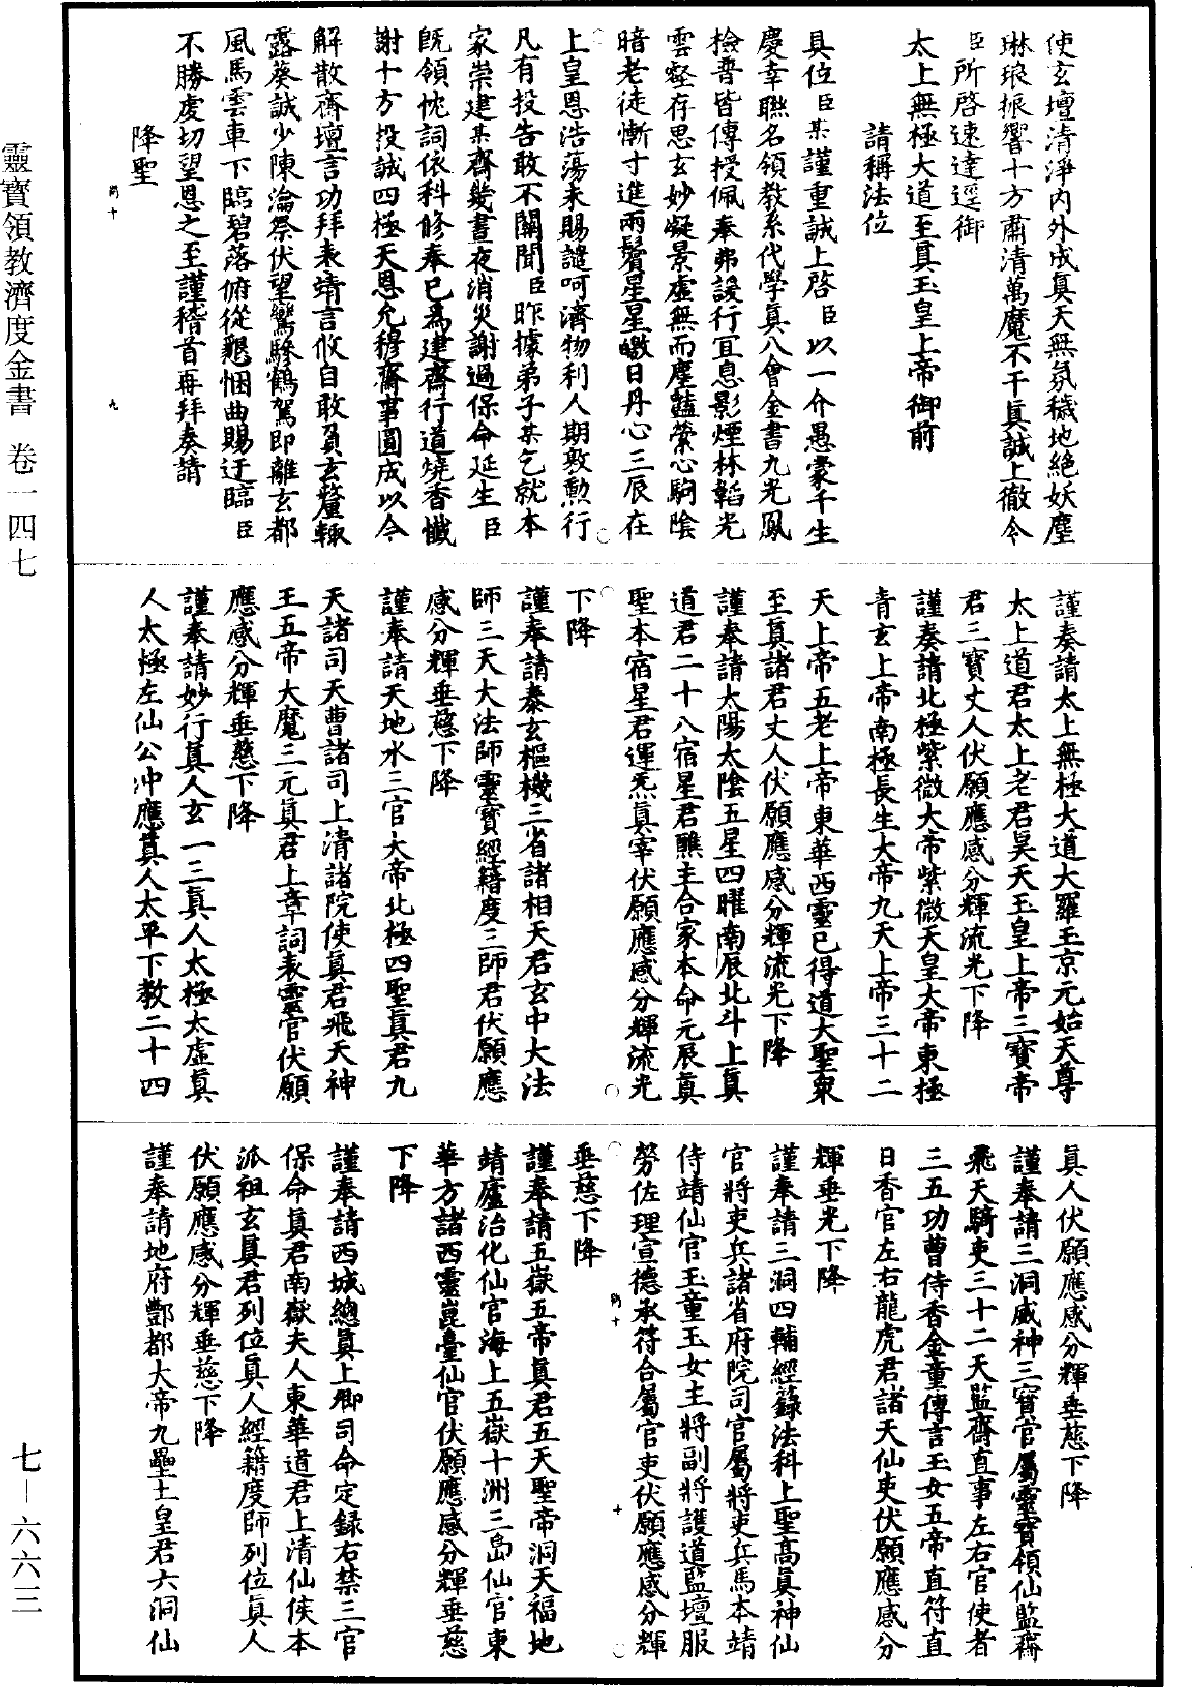 使玄壇清淨內外成真天無氛穢地絕妖塵
琳琅振響十方肅清萬魔不干真誠上徹令
臣所啓速達逕御
太上無極大道至真玉皇上帝御前
請稱法位
具位臣某謹重誠上啓臣以一介愚蒙千生
慶幸聯名領教系代學真八會金書九光鳳
檢普皆傳授佩奉弗設行宜息影煙林韜光
雲壑存思玄妙凝景虛無而塵囂縈心駒陰
暗老徒慚寸進兩鬢星星皦日丹心三辰在
上皇恩浩蕩未賜譴呵濟物利人期敷勲行
凡有投告敢不關聞臣昨據弟子某乞就本
家崇建某齋幾晝夜消災謝過保命延生臣
旣領忱詞依科修奉已為建齋行道燒香懺
謝十方投誠四極天恩允穆齋事圓成以今
解散齋壇言功拜表靖言攸自敢負玄釐輙
露葵誠少陳淪祭伏望鸞驂鶴駕即離玄都
風馬雲車下臨碧落俯從懇悃曲賜迂臨臣
不勝虔切望恩之至謹稽首再拜奏請
降聖
謹奏請太上無極大道大羅玉京元始天尊
太上道君太上老君昊天玉皇上帝三寶帝
君三寶丈人伏願應感分輝流光下降
謹奏請北極紫微大帝紫微天皇大帝東極
青玄上帝南極長生大帝九天上帝三十二
天上帝五老上帝東華西靈已得道大聖衆
至真諸君丈人伏願應感分輝流光下降
謹奉請太陽太陰五星四曜南辰北斗上真
道君二十八宿星君醮主合家本命元辰真
聖本宿星君運炁真宰伏願應感分輝流光
下降
謹奉請泰玄樞機三省諸相天君玄中大法
師三天大法師靈寶經籍度三師君伏願應
感分輝垂慈下降
謹奉請天地水三官大帝北極四聖真君九
天諸司天曹諸司上清諸院使真君飛天神
王五帝大魔三元真君上章詞表靈官伏願
應感分輝垂慈下降
謹奉請妙行真人玄一三真人太極太虛真
人太極左仙公冲應真人太平下教二十四
真人伏願應感分輝垂慈下降
謹奉請三洞威神三寶官屬靈寶領仙監齋
飛天騎吏三十二天監齋直事左右官使者
三五功曹侍香金童傳言玉女五帝直符直
日香官左右龍虎君諸天仙吏伏願應感分
輝垂光下降
謹奉請三洞四輔經籙法科上聖高真神仙
官將吏兵諸省府院司官屬將吏兵馬本靖
侍靖仙官玉童玉女主將副將護道監壇服
勞佐理宣德承符合屬官吏伏願應感分輝
垂慈下降
謹奉請五嶽五帝真君五天聖帝洞天福地
靖廬治化仙官海上五嶽十洲三島仙官東
華方諸西靈崑臺仙官伏願應感分輝垂慈
下降
謹奉請西城總真上卿司命定録右禁三官
保命真君南嶽夫人東華道君上清仙侯本
派祖玄真君列位真人經籍度師列位真人
伏願應感分輝垂慈下降
謹奉請地府酆都大帝九壘土皇君六洞仙
靈寶領教濟度金書 卷一四七
七—六六三